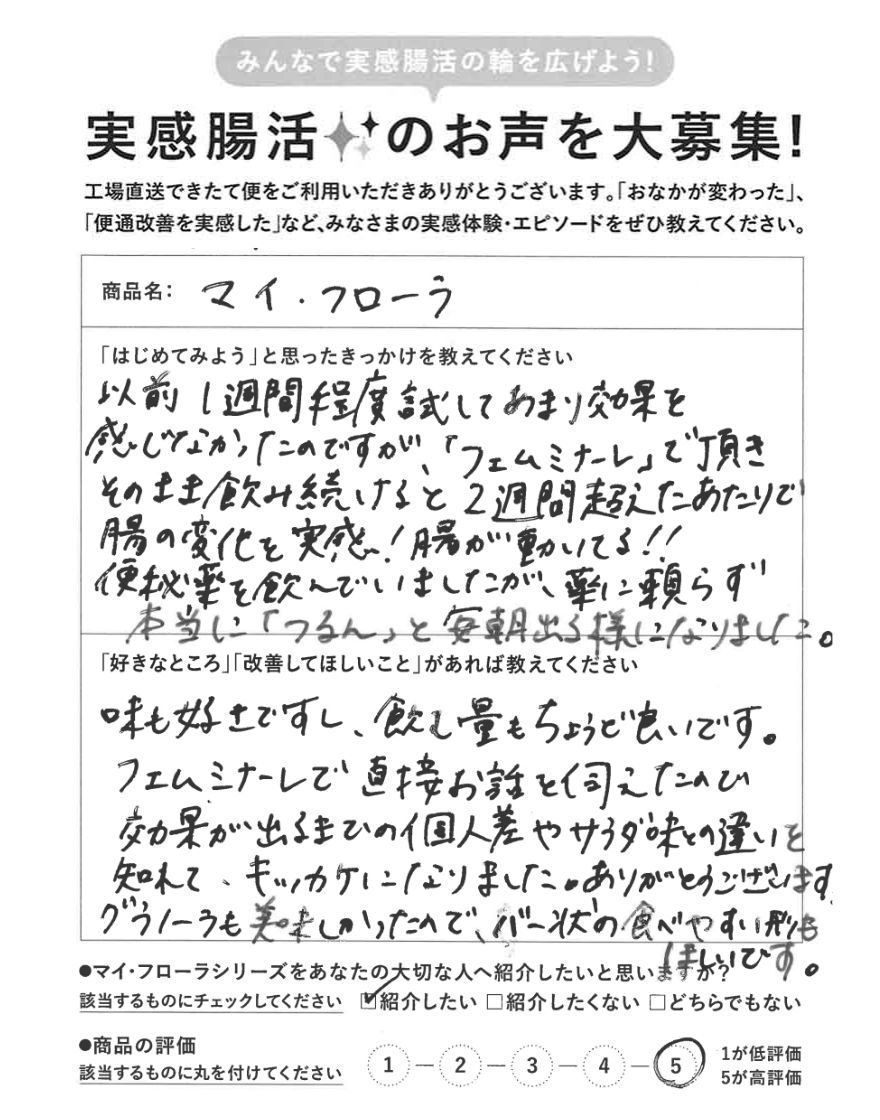 みんなで実感腸活の輪を広げよう!
実感腸活のお声を大募集!
工場直送できたて便をご利用いただきありがとうございます。「おなかが変わった」、
「便通改善を実感した」など、みなさまの実感体験・エピソードをぜひ教えてください。
商品名: マイ・フローラ
「はじめてみよう」と思ったきっかけを教えてください
以前1週間程度試してあまり効果を
感じなかったのですが、「フェムミナーレ」で頂き
そのまま飲み続けると2週間超えたあたりで
腸の変化を実感!腸が動いてる!!
便秘薬を飲んでいましたが、薬に頼らず
本当に「つるん」と毎朝出る様になりました。
「好きなところ」「改善してほしいこと」があれば教えてください
味も好きですし、飲む量もちょうど良いです。
フェムミナーレで直接お話を伺えたので
効果が出るまでの個人差やサラダ味との違いを
知れて、キッカケになりました。ありがとうございます
グラノーラも美味しかったので、バー状の食べやすい形も
ほしいです。
●マイ・フローラシリーズをあなたの大切な人へ紹介したいと思いますか?
該当するものにチェックしてください ☑紹介したい □紹介したくない □どちらでもない
●商品の評価
該当するものに丸を付けてください
1 — 2 — 3 — 4 — 5
1が低評価
5が高評価